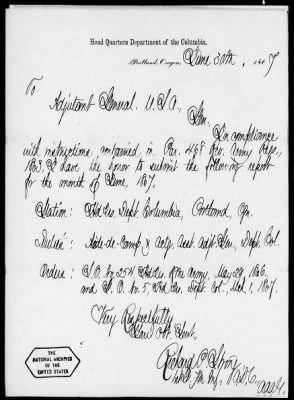 Head Quarters Department of the Columbia,
Portland, Oregon, June 30th, 1867
To
Adjutant General. U.S.A.,
Gen.
In compliance
with instructions, contained in Par. 468 Rev. Army Regs.,
1863, I have the honor to submit the following report
for the month of June, 1867.
Station: Hd Qrs. Dept. Columbia, Portland, Ogn.
Duties: Aide-de-Camp & actg. Asst. adjt. Gen, Dept. Col.
Orders: S.O. No. 254 Hd Qrs. of the Army, May 29, 1866,
and G.O. No. 5, Hd Qrs, Dept. Col., 1, 1867.
Very Respectfully
Obt. Servt.
THE
NATIONAL ARCHIVES
OF THE
UNITED STATES